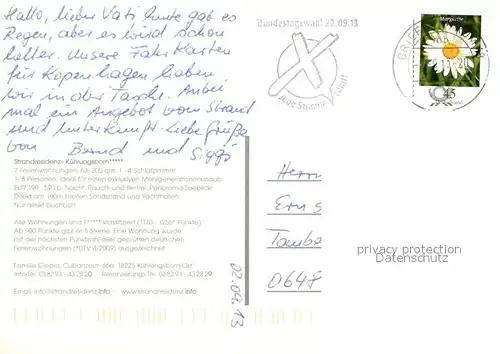 Hallo, lieber Vati heute gab es
Regen, aber es wird schon
heller. Unsere Fahrkarten
für Kopenhagen haben
wir in der Tasche. Anbei
mal ein Angebot vom Strand
und Unterkunft. Liebe Grüße
von Bernd und
Strandresidenz - Kühlungsborn*****
7 Ferienwohnungen, 63-205 qm, 1-4 Schlafzimmer
1-8 Personen, ideal für einen exklusiven Mehrgenerationenurlaub
EUR 190 - 590 p. Nacht, Rauch- und tierfrei, Panorama-Seeblick
Direkt am 100m tiefen Sandstrand und Yachthafen
Nur direkt buchbar!
Alle Wohnungen sind F***** klassifiziert
Ab 900 Punkte gibt es 5 Sterne. Eine Wohnung wurde
mit der höchsten Punktzahl aller geprüften deutschen
Ferienwohnungen (DTV 4/2009) ausgezeichnet
18225 Kühlungsborn-Ost
Info-Tel. 038293-432820 Reservierungs-Tel. 038293-432829
Email: info@strandresidenz.info www.strandresidenz.info
02.09.13
Bundestagswahl 22.09.13
Jede Stimme zählt!
Margerite
45
20
Herrn
Erns
Taube
0648
privacy protection
Datenschutz